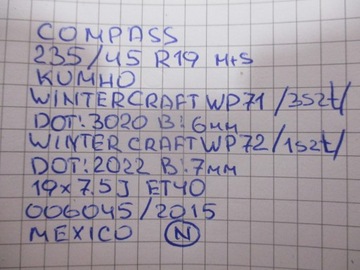 COMPASS
235/45 R19 M+S
KUMHO
WINTERCRAFT WP71 /3szt/
DOT:3020 B:6mm
WINTERCRAFT WP72 /1szt/
DOT:2022 B:7mm
19x7.5J ET40
006045/2015
MEXICO N